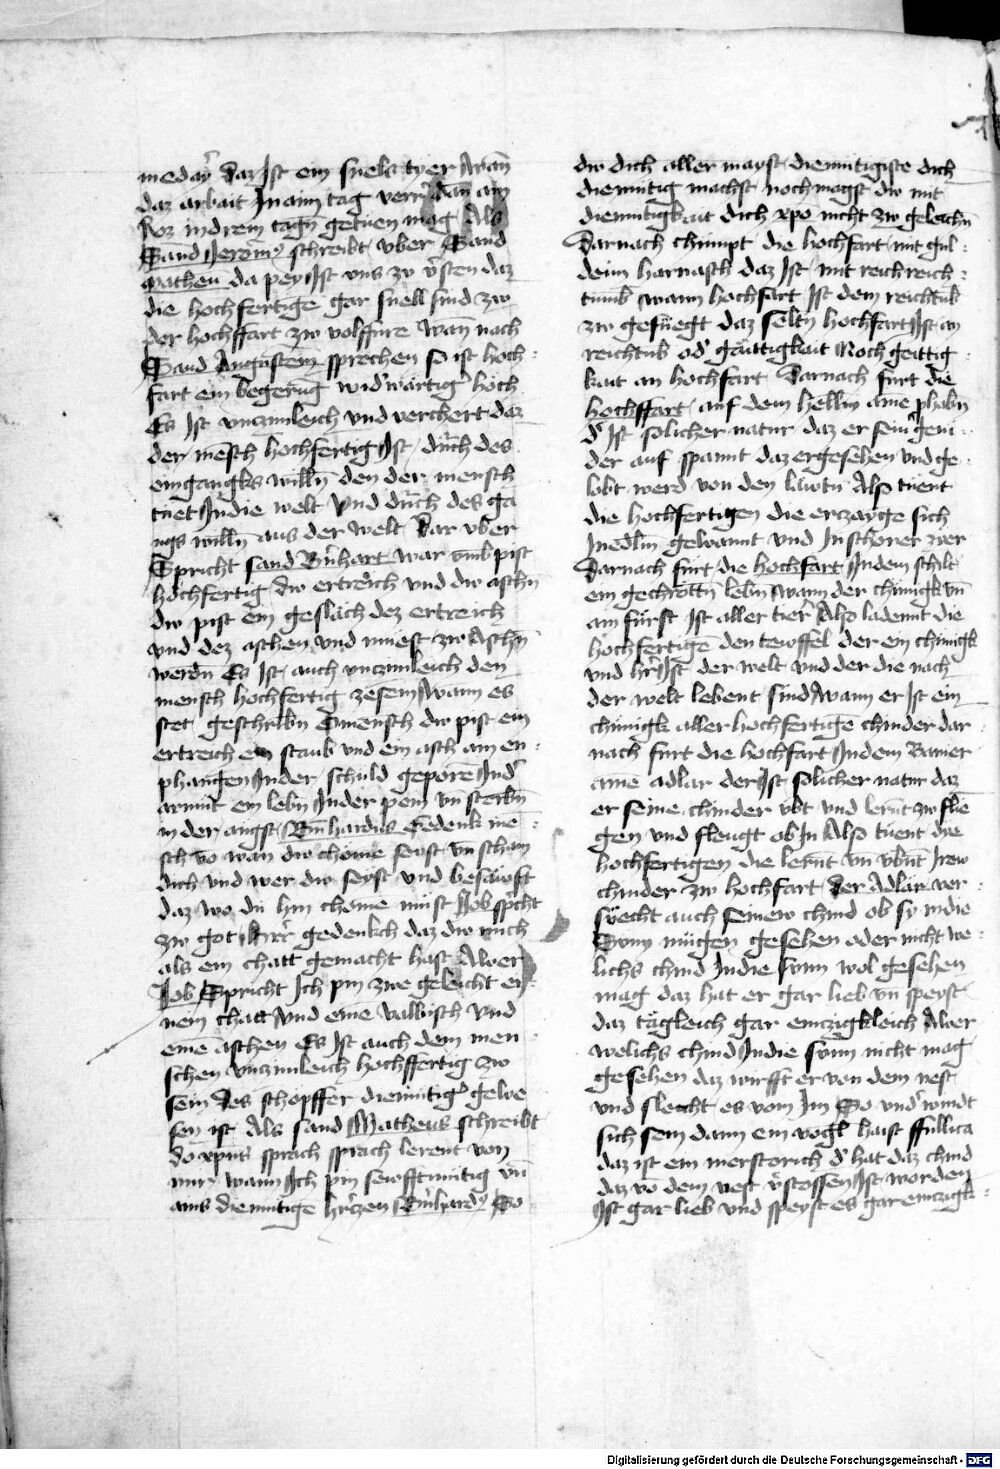 meday̆ daz Ist ein snels tyer Wan̄
daz arbait In aim tag verrˀ dan̄ ain
Roz in drein tagn̄ getuen mag Als
Sand Jeronimꝯ schreibt vber Sand
Matheu da pey Ist vns zu vˀsten daz
die hochfertige gar snell sind zw
der hochffart zw volffüre Wan̄ nach
Sand Augustem sprechen so ist hoch
fart ein begerūg widˀwärtigˀ höch
Es Ist vnczimleich vnd verchert daz
der mēsch hochfertig Ist durch des
eingangks willn̄ den der mensch
tuet In die welt Vnd durch des ga
ngs willn̄ aus der welt Dar vber
Spricht sand Bn̄hart war vmb pist
hochfertig dw ertreich vnd dw aschn̄
dw pist ein geslach dez ertreich
vnd dez aschen vnd muest zw Aschn̄
werdn̄ Es Ist auch vnczimleich den
mensch hochfertig ze sein Wann es
stet geschribn̄ O mensch dw pist ein
ertreich ein staub vnd ein asch ain en
phangen In der schuld geporē In dˀ
armut ein lebn̄ In der pein vn̄ sterbn̄
in der angst Bn̄hardus Gedenk mē
sch vō wan dw chōme seyst vn̄ scham
dich vnd wer dw seyst vnd besäwfft
daz wo du hin chōme müst Job spͥcht
zw got Herˀ gedenkch daz dw mich
als ein chatt gemacht hast Aber
Job Spricht Ich pin zwe geleicht ei
nem chatt vnd eine vallbisch vnd
eine aschen Es Ist auch dem men
schen vnczimleich hochffertig zw
sein des schöpffer diemütigˀ gewe
sen ist Als sand Matheus schreibt
do xpūs sprach sprach lerent von
mir wann Ich pin sewfftmütig vn̄
ains diemütige hˀczen Bn̄hardꝯ So
dw dich aller mayst diemütigiste dich
diemütig machst noch magst dw mit
diemütigkait dich xpō nicht zw geleichn̄
Darnach chümpt die hochfart mit gul
deim harnasch daz Ist mit reich reich
tumb wann hochfart Ist dem reichtūb
zw gefüegt daz seltn̄ hochfart Ist an
reichtūb odˀ gäuttigkait Noch geittig
kait an hochfart Darnach fürt die
hochffart auf dem hellm aine phabn̄
dˀ Ist solicher natur daz er sein geui
der auf spannt daz er gesehen vnd ge
lobt werd von den läwtn̄ Also tuent
die hochfertigen die erczayge sich
In edlm̄ gewannt vnd In schoner zier
Darnach fürt die hochfart In dem schilt
ein gechröttn̄ lebn̄ wann der chünigk vn̄
ain fürst Ist aller tierˀ Also ladennt die
hochfertigē den tewffel der ein chünigk
vnd hˀr Ist der welt vnd der die nach
der welt lebent sind Wann er Ist ein
chünigk aller hochfertige chinder dar
nach fürt die hochfart In dem Banier
aine adlar der Ist solicher natur daz
er seine chinder vbt vnd lernt zw flie
gen vnd fleugt ob In Also tüent die
hochfertigen die lernt vn̄ vbn̄t Irew
chinder zw hochfart der Adlar ver
süecht auch seinew chind ob sy in die
Sunn mügen gesehen oder nicht we
lichs chind In die Sunn wol gesehen
mag daz hat er gar lieb vn̄ speyst
daz tägleich gar emczigkleich Aber
welichs chind In die sunn nicht mag
gesehen daz wirfft er von dem nest
vnd slecht es vom Im So vndˀwindt
sich sein dann ein vogl haist ffullica
daz ist ein merstorich dˀ hat daz chind
daz vō dem nest vˀstossen Ist worden
Ist gar lieb vnd speyst es gar emczigk
Digitalisierung gefördert durch die Deutsche Forschungsgemeinschaft - DFG